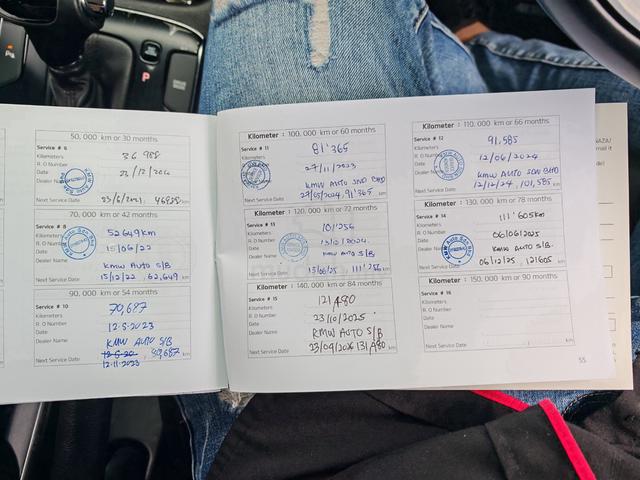 50, 000 km or 30 months
Service # 6
Kilometers
R. O Number
Date
Dealer Name
Next Service Date
km
70, 000 km or 42 months
Service # 8
Kilometers 52649km
R. O Number
Date 15/06/22
Dealer Name
KMW AUTO S/B
Next Service Date 15/12/22 , 62,649 km
90, 000 km or 54 months
Service # 10
Kilometers 70,687
R. O Number
Date 12.5.2023
Dealer Name KMW AUTO S/B
Next Service Date 80,687 km
12.11.2023
Kilometer : 100, 000 km or 60 months
Service # 11 81'365
Kilometers
R. O Number
Date 27/11/2023
Dealer Name KMW AUTO SDN BHD
Next Service Date 27/05/2024, 91'365 km
Kilometer : 120, 000 km or 72 months
Service # 13 101/256
Kilometers
R. O Number
Date
Dealer Name KMW AUTO S/B
Next Service Date 111'256 km
Kilometer : 140, 000 km or 84 months
Service # 15 121,480
Kilometers
R. O Number 23/10/2025
Date
Dealer Name KMW AUTO S/B
Next Service Date 131,480 km
Kilometer : 110, 000 km or 66 months
Service # 12 91,585
Kilometers
R. O Number 12/06/2024
Date
Dealer Name KMW AUTO SDN BHD
Next Service Date 12/12/24, 101,585 km
Kilometer : 130, 000 km or 78 months
Service # 14 111'605km
Kilometers
R. O Number
Date 06/06/2025
Dealer Name KMW AUTO S/B.
Next Service Date 06/12/25, 121605 km
Kilometer : 150, 000 km or 90 months
Service # 16
Kilometers
R. O Number
Date
Dealer Name
Next Service Date km
55
P